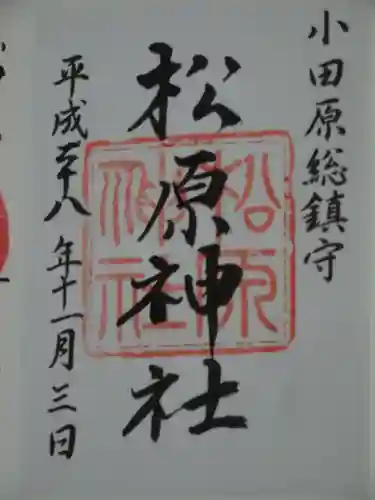 小田原総鎮守
松原神社
平成二十八年十一月三日
松原神社